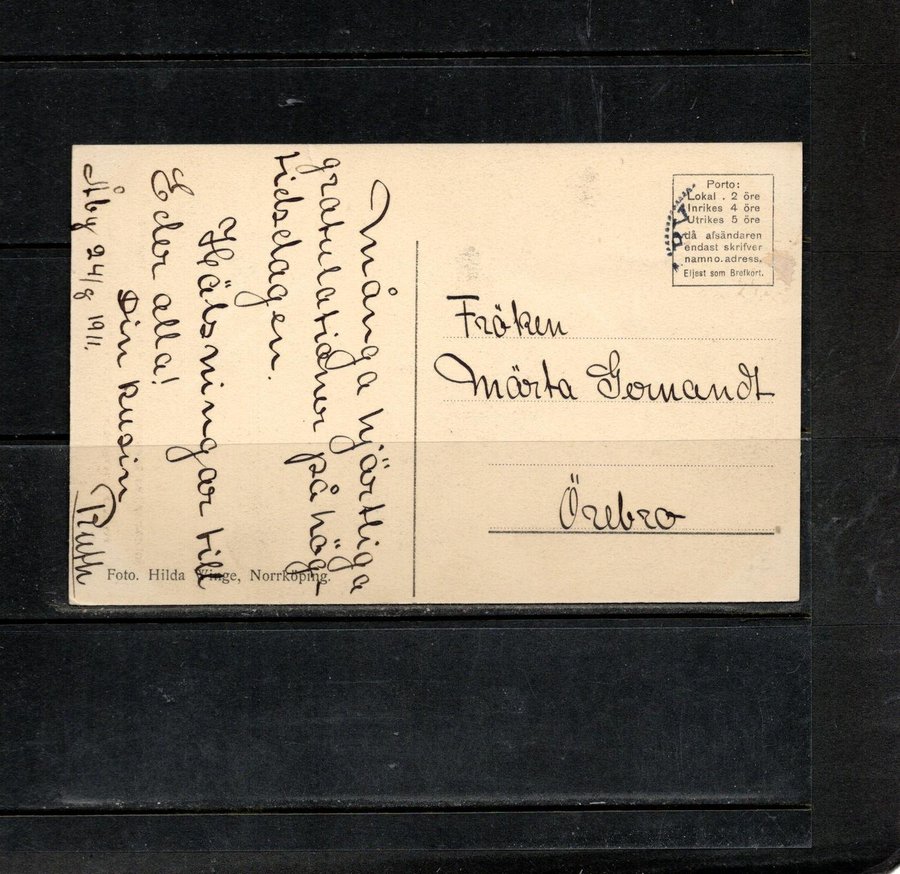 Många hjärtliga
gratulationer på hög-
tidsdagen.
Hälsningar till
Eder alla!
Din kusin
Ruth
Åby 24/8 1911.
Foto. Hilda Winge, Norrköping.
Porto:
Lokal . 2 öre
Inrikes 4 öre
Utrikes 5 öre
då afsändaren
endast skrifver
namn o. adress.
Eljest som Brefkort.
Fröken
Märta Gernandt
Örebro